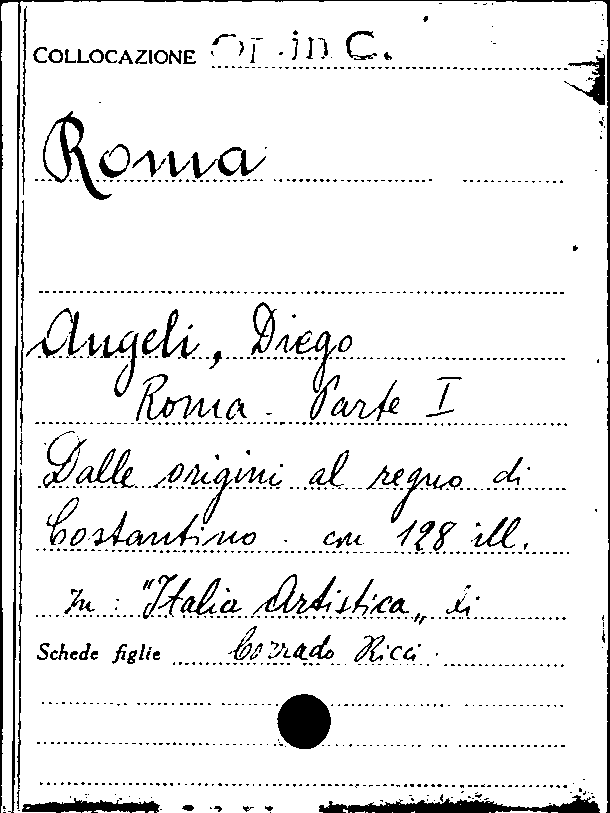 COLLOCAZIONE in C.
Roma
Angeli, Diego
Roma - Parte I
Dalle origini al regno di
Costantino - con 128 ill.
In: "Italia Artistica„ di
Schede figlie Corrado Ricci.